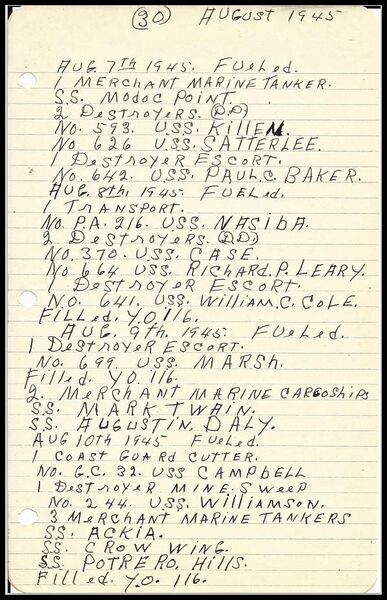 (30) AUGUST 1945
AUG. 7TH 1945. FUELED.
1 MERCHANT MARINE TANKER.
S.S. MODOC POINT.
2 DESTROYERS. (D.D.)
NO. 593. USS. KILLEN.
NO. 626 USS. SATTERLEE.
1 DESTROYER ESCORT.
NO. 642. USS. PAUL. C. BAKER.
AUG. 8TH. 1945. FUELED.
1 TRANSPORT.
NO. P.A. 216. USS. NASIBA.
2 DESTROYERS. (D.D.)
NO. 370. USS. CASE.
NO 664 USS. RICHARD. P. LEARY.
1 DESTROYER ESCORT.
NO. 641. USS. WILLIAM. C. COLE.
FILLED. Y.O. 116.
AUG. 9TH. 1945. FUELED.
1 DESTROYER ESCORT.
NO. 699. USS. MARSH.
FILLED. Y.O. 116.
2. MERCHANT MARINE CARGOSHIPS
S.S. MARK TWAIN.
S.S. AUGUSTIN. DALY.
AUG 10TH 1945 FUELED.
1 COAST GUARD CUTTER.
NO. G.C. 32. USS CAMPBELL
1 DESTROYER MINE. SWEEP
NO. 244. USS. WILLIAMSON.
3 MERCHANT MARINE TANKERS
SS. ACKIA.
SS. CROW WING.
SS. POTRERO. HILLS.
FILLED. Y.O. 116.